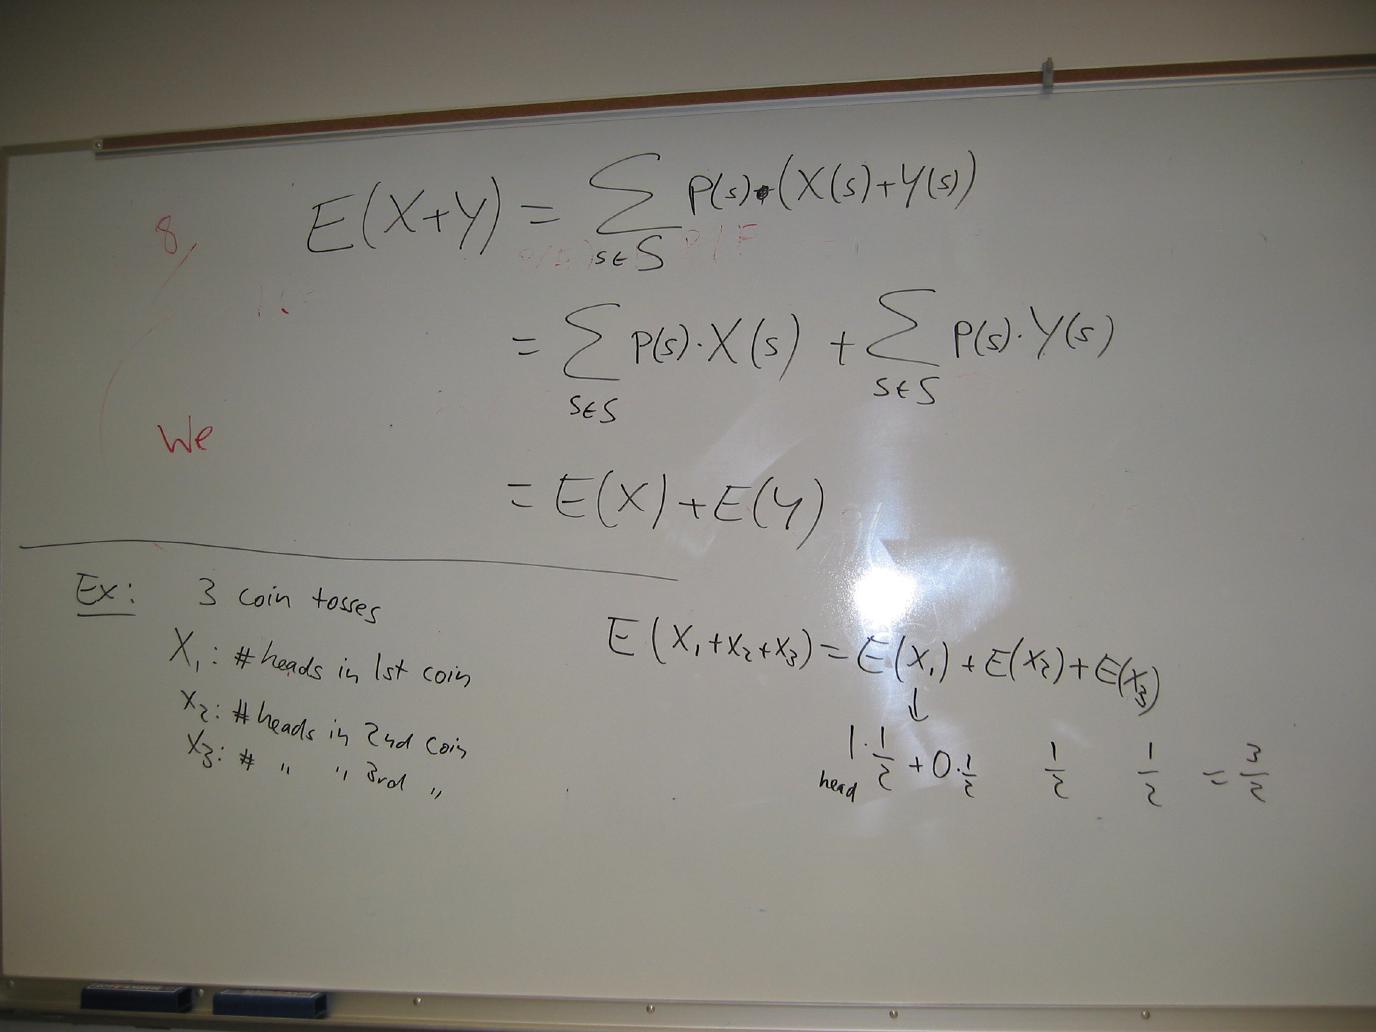 8
E(X+Y) = ∑ P(s)·(X(s)+Y(s))
s∈S
= ∑ P(s)·X(s) + ∑ P(s)·Y(s)
s∈S s∈S
We
= E(X)+E(Y)
Ex: 3 coin tosses
X₁: # heads in 1st coin
X₂: # heads in 2nd coin
X₃: # " " 3rd "
E(X₁+X₂+X₃) = E(X₁)+E(X₂)+E(X₃)
↓
1·1/2 + 0·1/2 1/2 1/2 = 3/2
head